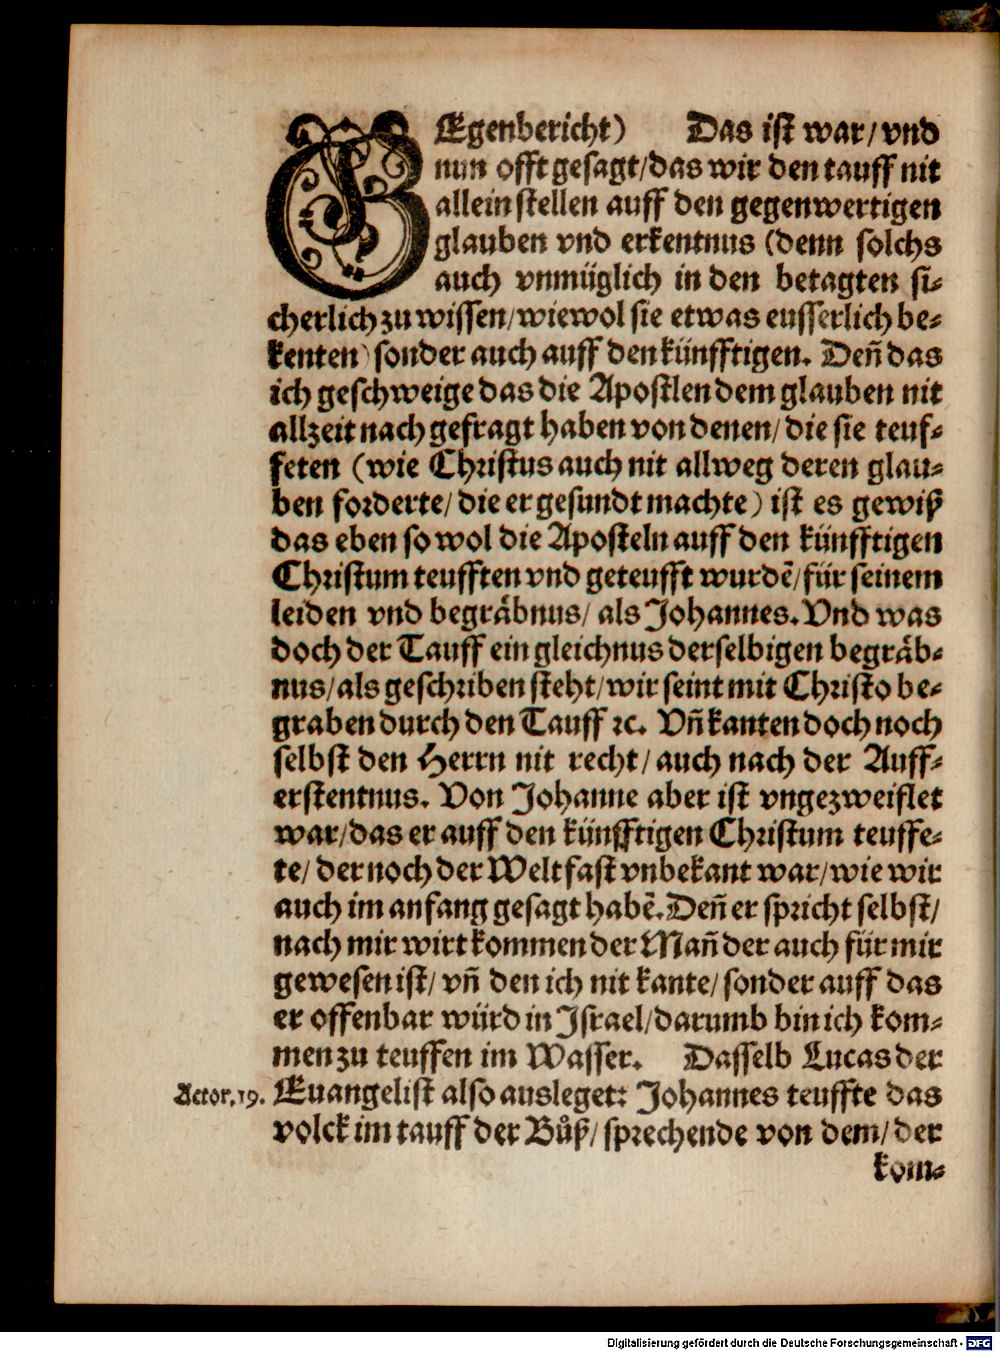 GEgenbericht) Das ist war/ vnd
nun offt gesagt/ das wir den tauff nit
allein stellen auff den gegenwertigen
glauben vnd erkentnus (denn solchs
auch vnmüglich in den betagten si⸗
cherlich zu wissen/ wiewol sie etwas eusserlich be⸗
kenten) sonder auch auff den künfftigen. Deñ das
ich geschweige das die Apostlen dem glauben nit
allzeit nach gefragt haben von denen/ die sie teuf⸗
feten (wie Christus auch nit allweg deren glau⸗
ben forderte/ die er gesundt machte) ist es gewiß
das eben so wol die Aposteln auff den künfftigen
Christum teufften vnd geteufft wurdẽ/ für seinem
leiden vnd begräbnus/ als Johannes. Vnd was
doch der Tauff ein gleichnus derselbigen begräb⸗
nus/ als geschriben steht/ wir seint mit Christo be⸗
graben durch den Tauff ꝛc. Vñ kanten doch noch
selbst den Herrn nit recht/ auch nach der Auff⸗
erstentnus. Von Johanne aber ist vngezweiflet
war/ das er auff den künfftigen Christum teuffe⸗
te/ der noch der Welt fast vnbekant war/ wie wir
auch im anfang gesagt habẽ. Deñ er spricht selbst/
nach mir wirt kommen der Mañ der auch für mir
gewesen ist/ vñ den ich nit kante/ sonder auff das
er offenbar würd in Israel/ darumb bin ich kom⸗
men zu teuffen im Wasser. Dasselb Lucas der
Actor. 19. Euangelist also ausleget: Johannes teuffte das
volck im tauff der Bůß/ sprechende von dem/ der
kom⸗
Digitalisierung gefördert durch die Deutsche Forschungsgemeinschaft - DFG